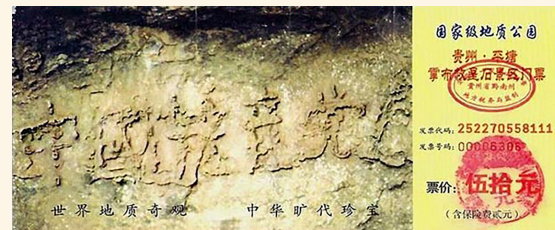 中國共産党亡
世界地质奇观 中华旷代珍宝
国家级地质公园
贵州·平塘
掌布藏字石景区门票
贵州省黔南州
发票代码: 252270558111
发票号码: 00006306
票价: 伍拾元
(含保险费贰元)